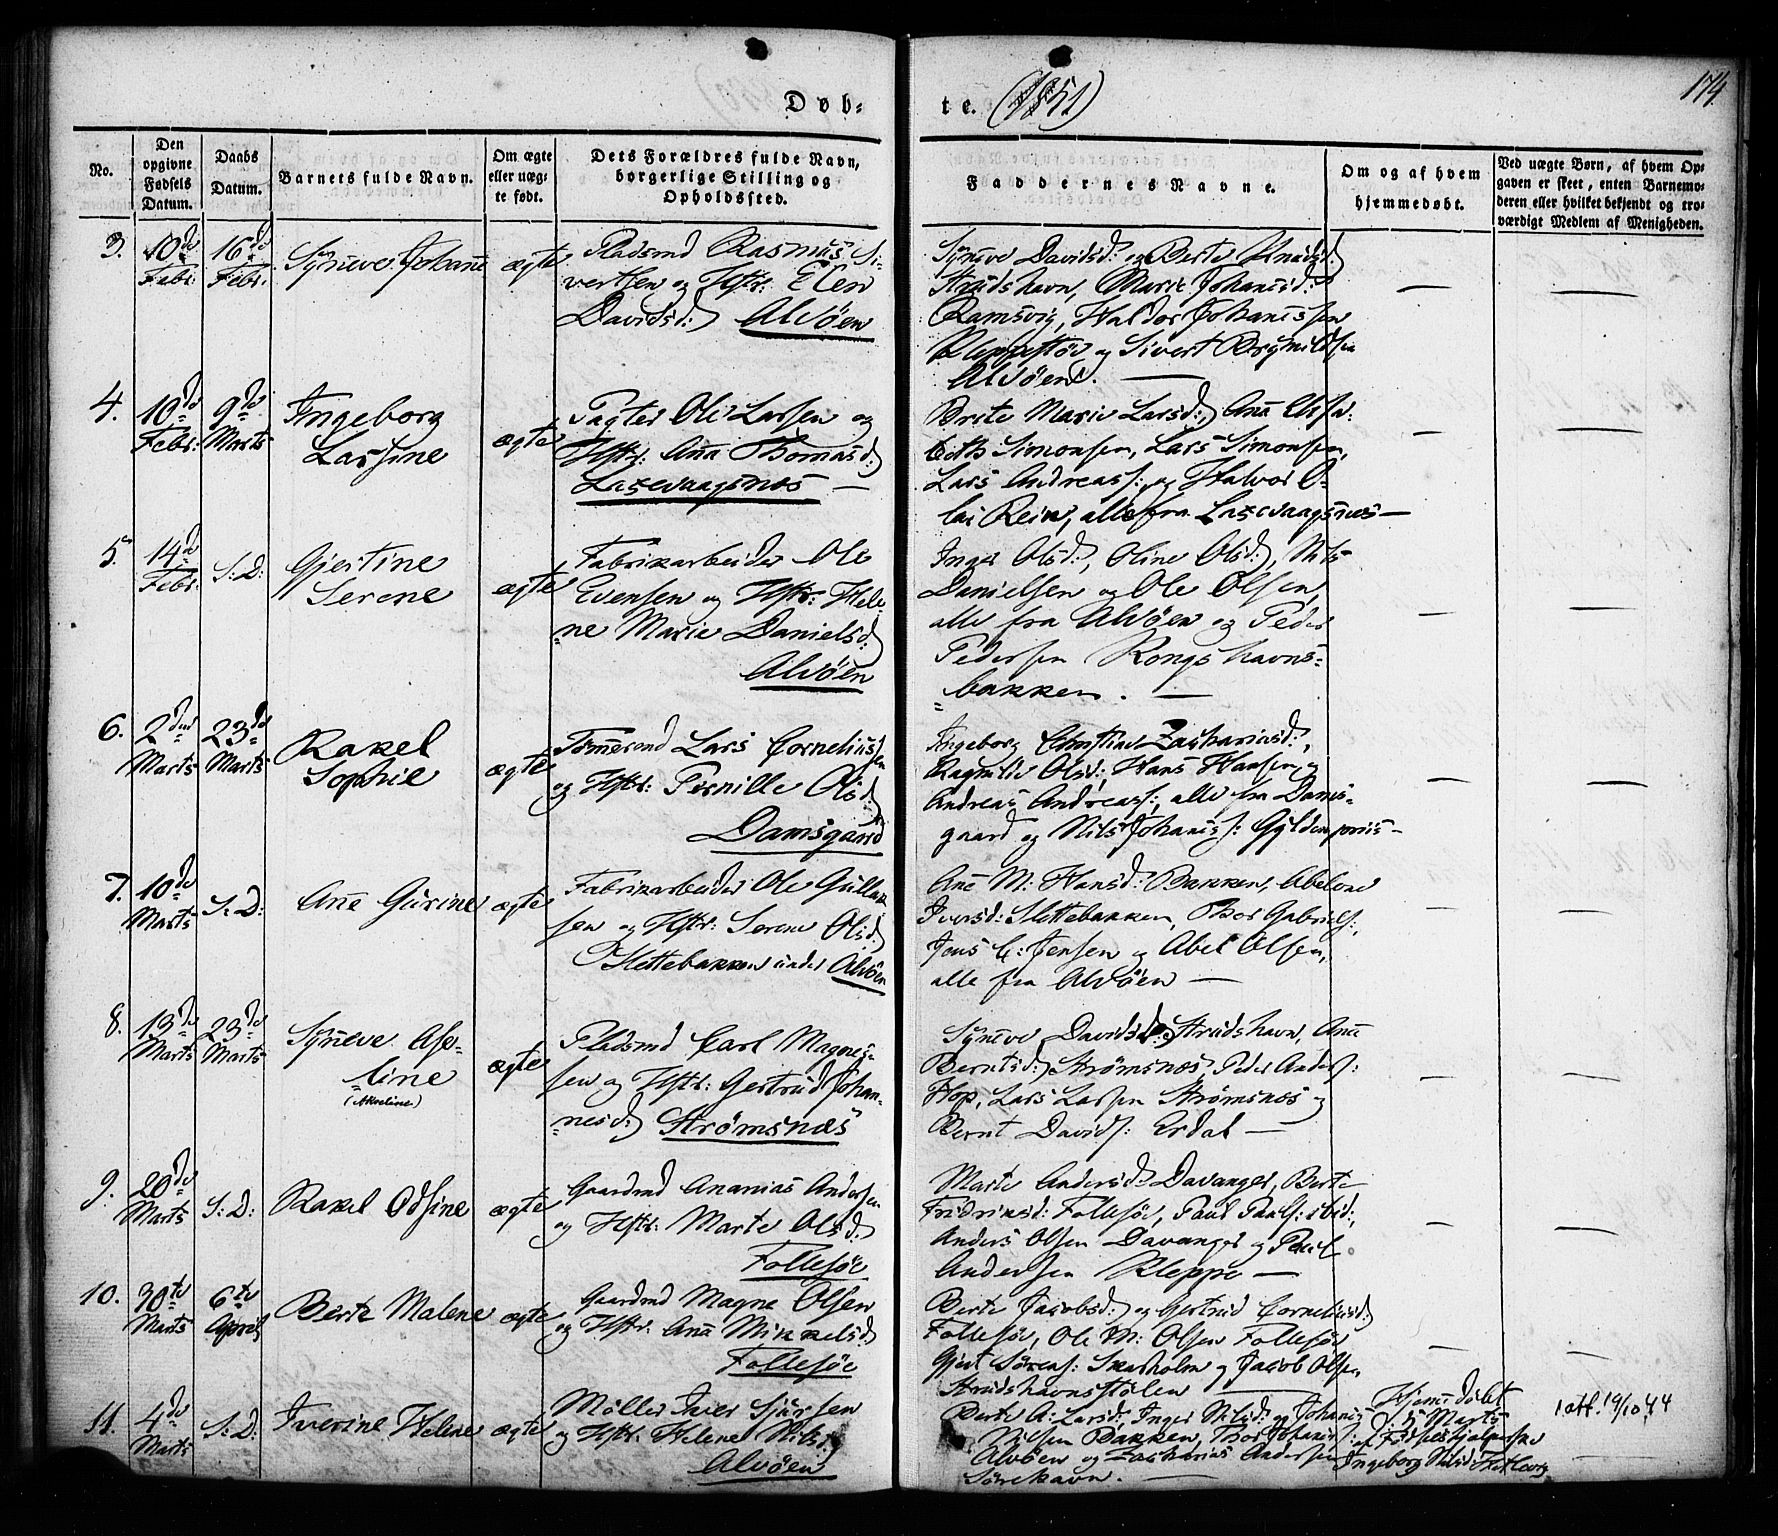 174.
Døb-
te. (1851)
No.
Den opgivne Fødsels Datum.
Daabs Datum.
Barnets fulde Navn.
Om ægte eller uægte født.
Dets Forældres fulde Navn, borgerlige Stilling og Opholdssted.
Faddernes Navne.
Om og af hvem hjemmedøbt.
Ved uægte Børn, af hvem Opgaven er skeet, enten Barnemoderen eller hvilket bekjendt og troværdigt Medlem af Menigheden.
3. 10de Febr: 16de Febr: Syneve Johanne ægte
Pladsmd Rasmus Si-
vertsen og Hstr: Elen
Davidsd: Alvøen
Syneve Davidsd: og Berte Knudsd:
Strudshavn, Marie Johannisd:
Ramsvig, Haldor Johannissen
Kleppestøe og Sivert Brynildsen
Alvøen. —
4. 10de Febr: 9de Marts Ingeborg
Larsine ægte
Pagter Ole Larsen og
Hstr: Ana Thomasd:
Laxevaagsnæs —
Brite Marie Larsd: Ana Elisa-
beth Simonsen, Lars Simonsen,
Lars Andreass: og Halvor O-
lai Rein, alle fra Laxevaagsnæs —
5. 14de Febr: S: D: Gjertine
Serene ægte
Fabrikarbeider Ole
Evensen og Hstr: Hele-
ne Marie Danielsd:
Alvøen
Inger Olsd:, Oline Olsd:, Nils
Danielsen og Ole Olsen,
alle fra Alvøen og Peder
Pedersen Kongshavns-
bakken. —
6. 2den Marts 23de Marts Rakel
Sophie ægte
Tømmermd Lars Corneliussen
og Hstr: Pernille Olsd:
Damsgaard
Ingeborg Christine Zachariasd:,
Ragnilde Olsd:, Hans Hansen og
Andreas Andreass:, alle fra Dams-
gaard og Nils Johanis: Gyldenpriis —
7. 10de Marts S: D: Ane Gurine ægte
Fabrikarbeider Ole Gullak-
sen og Hstr: Serene Olsd:
Slettebakken under Alvøen
Ane M: Hansd: Bakken, Abelone
Iversd: Slettebakken, Thor Gabriels:,
Jens C: Jensen og Abel Olsen,
alle fra Alvøen —
8. 13de Marts 23de Marts Syneve Ase-
line
(Akseline) ægte
Pladsmd Carl Magnes-
sen og Hstr: Gertrud Johan-
nesd: Strømsnæs
Syneve Davidsd: Strudshavn, Ana
Berntsd: Strømsnæs, Peder Anders:
Hop, Lars Larsen Strømsnæs og
Bernt Davids: Erdal —
9. 20de Marts S: D: Rakel Odsine ægte
Gaardmd Ananias Andersen
og Hstr: Marte Olsd:
Follesøe
Marte Andersd: Davanger, Berte
Fredriksd: Follesøe, Paul Pauls: ibid:,
Anders Olsen Davanger og Poul
Andersen Kleppe —
10. 30te Marts 6te April Berte Malene ægte
Gaardmd Magne Olsen
og Hstr: Ana Mikkelsd:
Follesøe
Berte Jacobsd: og Gertrud Corneliusd:
Follesøe, Ole M: Olsen Follesøe
Gjert Sørens: Skarholm og Jacob Olsen
Strudshavnsstølen —
11. 4de Marts S: D: Iverine Helene ægte
Møller Iver Sjursen
og Hstr: Helene Nilsd:
Alvøen
Berte A: Larsd:, Inger Nilsd: og Johanis
Nilsen Bakken, Thor Johanis:
Alvøen og Zacharias Andersen
Sørehavn. —
Hjemedøbt
d. 5 Marts
af Fødselshjelperske
Ingeborg Nilsd:
1 att. 19/10 44